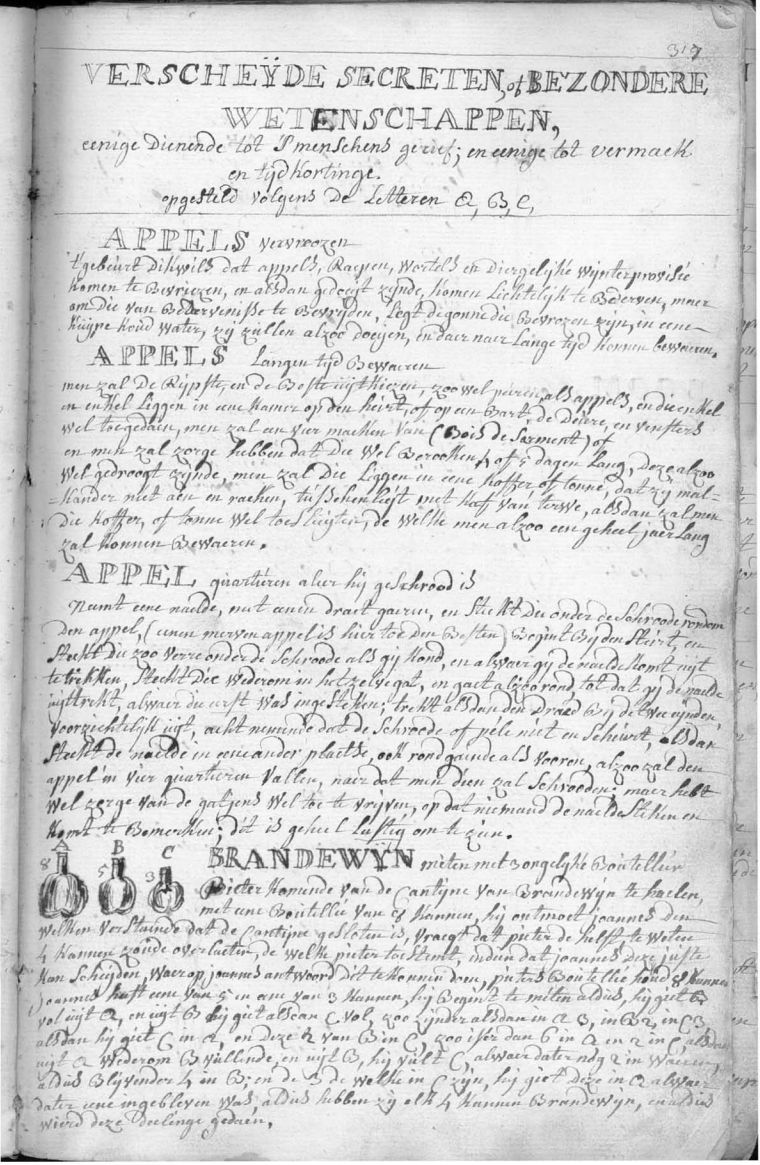 317
VERSCHEŸDE SECRETEN, of BEZONDERE
WETENSCHAPPEN,
eenige Dienende tot S'menschens gerief; en eenige tot vermaek
en tijdkortinge.
opgesteld volgens De Letteren A, B, C,
APPELS vervroozen
t'gebeurt Dikwils dat appels, Raepen, Wortels en Diergelijke wijnterprovisie
komen te Bevriezen, en alsdan gedoijt zijnde, komen Lichtelijk te Bederven, maer
om Die van Bedervenisse te Bevrijden, Legt degonne die Bevrozen zijn, in eene
kuijpe koud water, zij zullen alzoo doeijen, en daer naer Lange tijd konnen bewaeren.
APPELS Langen tijd Bewaeren
men zal De Rijpste, en de Beste uijtkiezen, zoo wel peiren, als appels, en die enkel
en enkel Liggen in eene kamer op den heirt, of op een Bart, de Deure, en vensters
wel toegedaen, men zal een vier maeken van (Bois de Sarment) of
en men zal zorge hebben dat Die Wel Berooken 4 of 5 dagen Lang, Deze alzoo
Wel gedroogt zijnde, men zal Die Liggen in eene koffer of tonne, dat zij mal=
=kander niet aen en raeken, tusschenleijt met kaf van terwe, alsdan zal men
Die koffer, of tonne wel toesluijten, de welke men alzoo een geheel jaer Lang
zal konnen Bewaeren.
APPEL quartieren aleer hij geschrood is
Neemt eene naelde, met eenen draet gaeren, en Stekt Die onder de Schroode rondom
Den appel, (eenen merven appel is hier toe Den Besten) Begint Bij den Steirt, en
Stekt Die zoo verre onder de Schroode als gij kond, en alwaer gij de naelde komt uijt
te trekken, Stecht Die Wederom in het zelve gat, en gaet alzoo rond, tot dat gij de naelde
uijttrekt, alwaer die eerst was ingesteken; trekt alsdan den Draed Bij de twee eijnden
voorzichtelijk uijt, acht nemende dat de Schroode of péle niet en Scheurt, alsdan
Steckt de naelde in eene ander plaetse, ook rond gaende als vooren, alzoo zal den
appel in vier quartieren Vallen, naer dat men dien zal Schrooden: maer hebt
wel zorge van de gatjens wel toe te vrijven, op dat niemand de naelde Steken en
komt te Bemerken; dit is geheel Lustig om te zien.
A B C
8 5 3
BRANDEWYN meten met 3 ongelijke Bouteillien
Pieter komende van de Cantijne van Brandewijn te haelen,
met eene Bouteille van 8 kannen, hij ontmoet joannes den
welken verstaende dat de Cantijne gesloten is, vraegt dat pieter de helft te weten
4 kannen zoude overlaeten, de welke pieter toestemt, indien dat joannes deze juste
kan Scheijden, waer op joannes antwoord dit te konnen doen, pieters Bouteille houd 8 kannen
joannes heeft eene van 5 en eene van 3 kannen, hij Begint te meten aldus, hij giet B
vol uijt A, en uijt B hij giet alsdan C vol, zoo zijnder alsdan in A 3, in B 2, in C 3,
alsdan hij giet C in A, en deze 2 van B in C, zoo isser dan 6 in A en 2 in C alsdan
uijt A Wederom B vullende, en uijt B, hij vult C alwaer dater nog 2 in waeren,
aldus Blijvender 4 in B; en de 3 de welke in C zijn, hij giet deze in A alwaer
dater eene ingebleven was, aldus hebben zij elk 4 kannen Brandewijn, en aldus
wierd deze Deelinge gedaen.